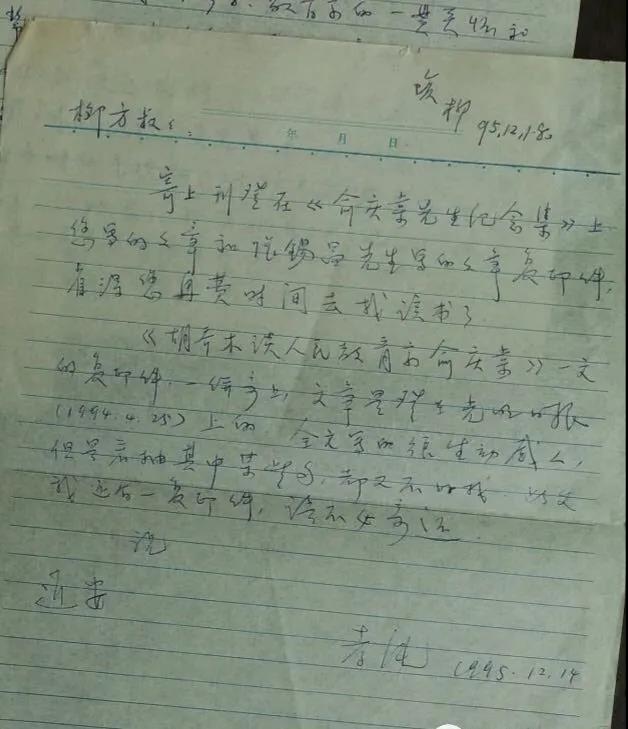 的一
复柳
95.12.18.
柳方教:
年 月 日
寄上刊登在《俞庆棠先生纪念集》上
您写的文章和张锡昌先生写的文章复印件,
省得您再费时间去找该书了
《胡乔木谈人民教育家俞庆棠》一文
的复印件,一併寄上,文章是登在光明日报
(1994.4.25)上的 全文写的很生动感人,
但是若抽其中某些, 却又不
我还有一复印件,请不必寄还.
祝
近安
1995.12.14